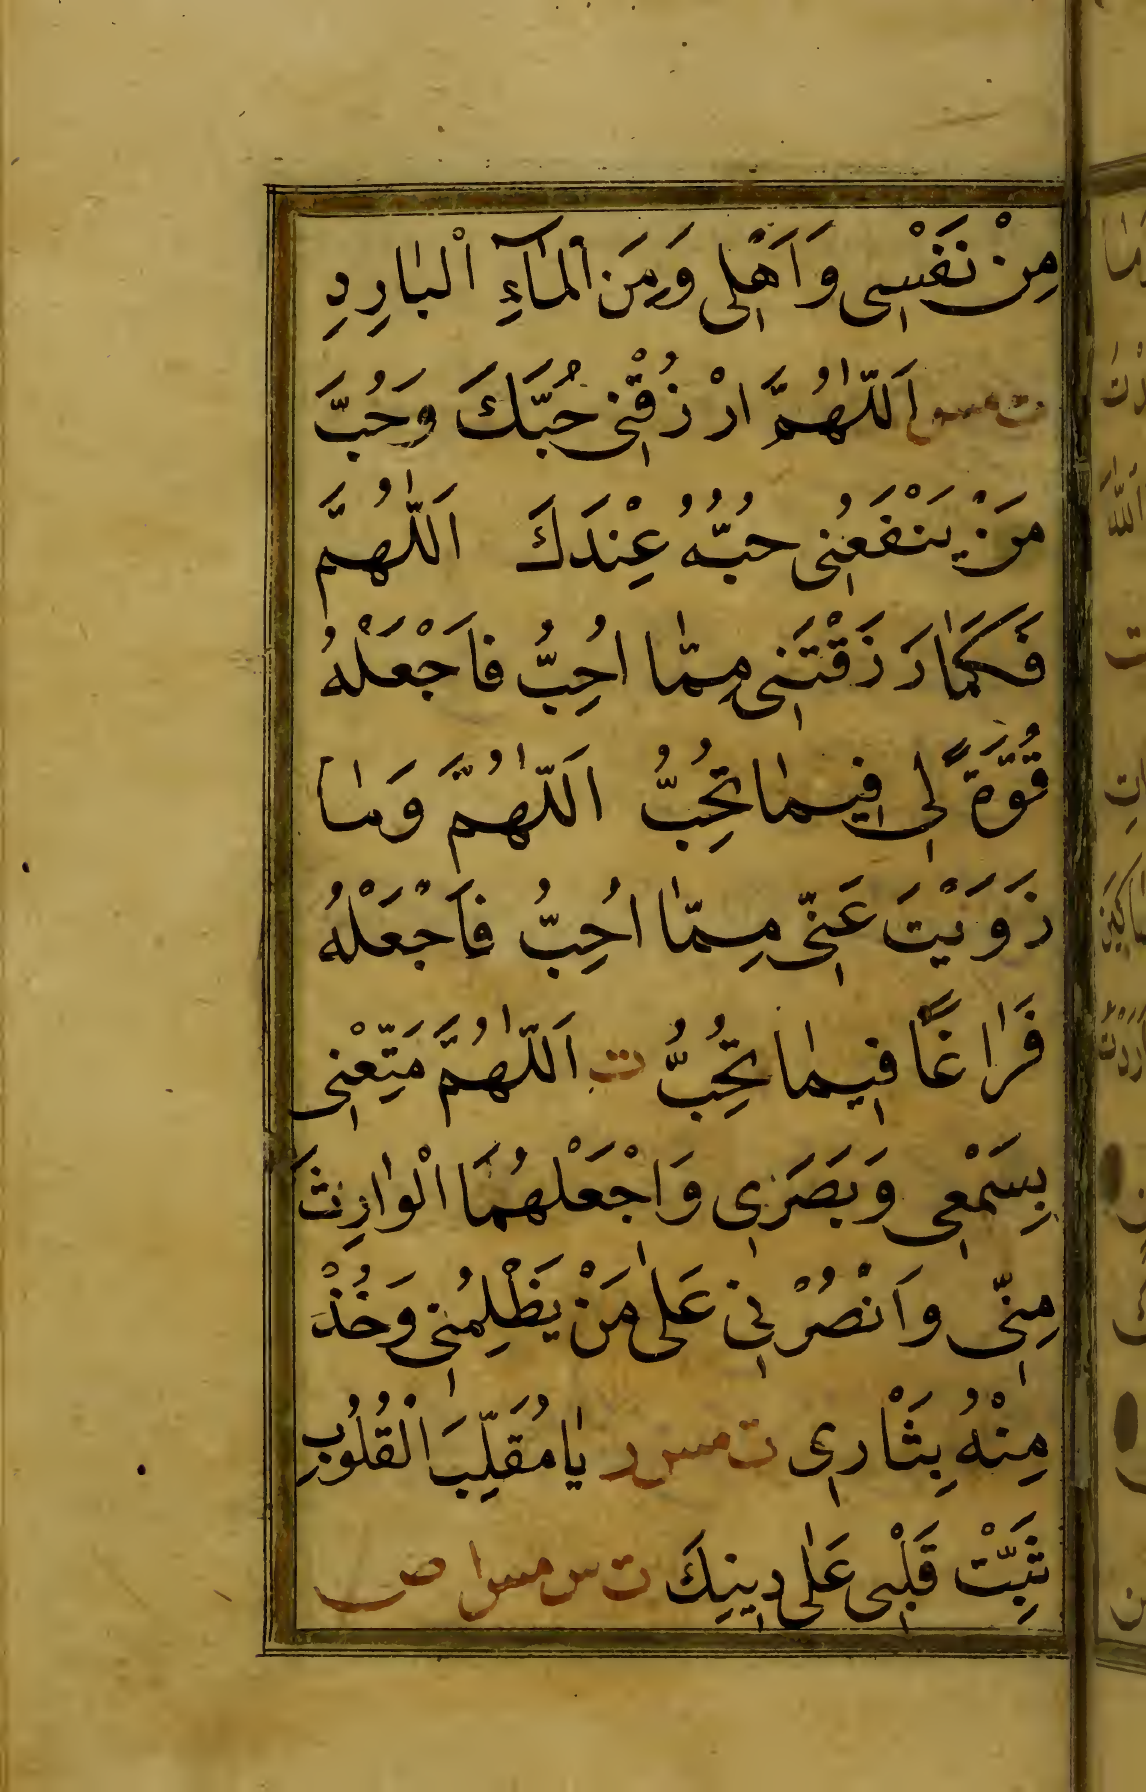 مِنْ نَفْسِی وَاَهْلِی وَمِنَ الْمَآءِ الْبَارِدِ
ت مس اَللّٰهُمَّ ارْزُقْنِی حُبَّكَ وَحُبَّ
مَنْ يَنْفَعُنِی حُبُّهُ عِنْدَكَ اَللّٰهُمَّ
فَكَمَا رَزَقْتَنِی مِمَّا اُحِبُّ فَاجْعَلْهُ
قُوَّةً لِی فِيمَا تُحِبُّ اَللّٰهُمَّ وَمَا
زَوَيْتَ عَنِّی مِمَّا اُحِبُّ فَاجْعَلْهُ
فَرَاغًا فِيمَا تُحِبُّ ت اَللّٰهُمَّ مَتِّعْنِی
بِسَمْعِی وَبَصَرِی وَاجْعَلْهُمَا الْوَارِثَ
مِنِّی وَانْصُرْنِی عَلٰی مَنْ يَظْلِمُنِی وَخُذْ
مِنْهُ بِثَأْرِی ت مس ر يَا مُقَلِّبَ الْقُلُوبِ
ثَبِّتْ قَلْبِی عَلٰی دِينِكَ ت س مس ا ص